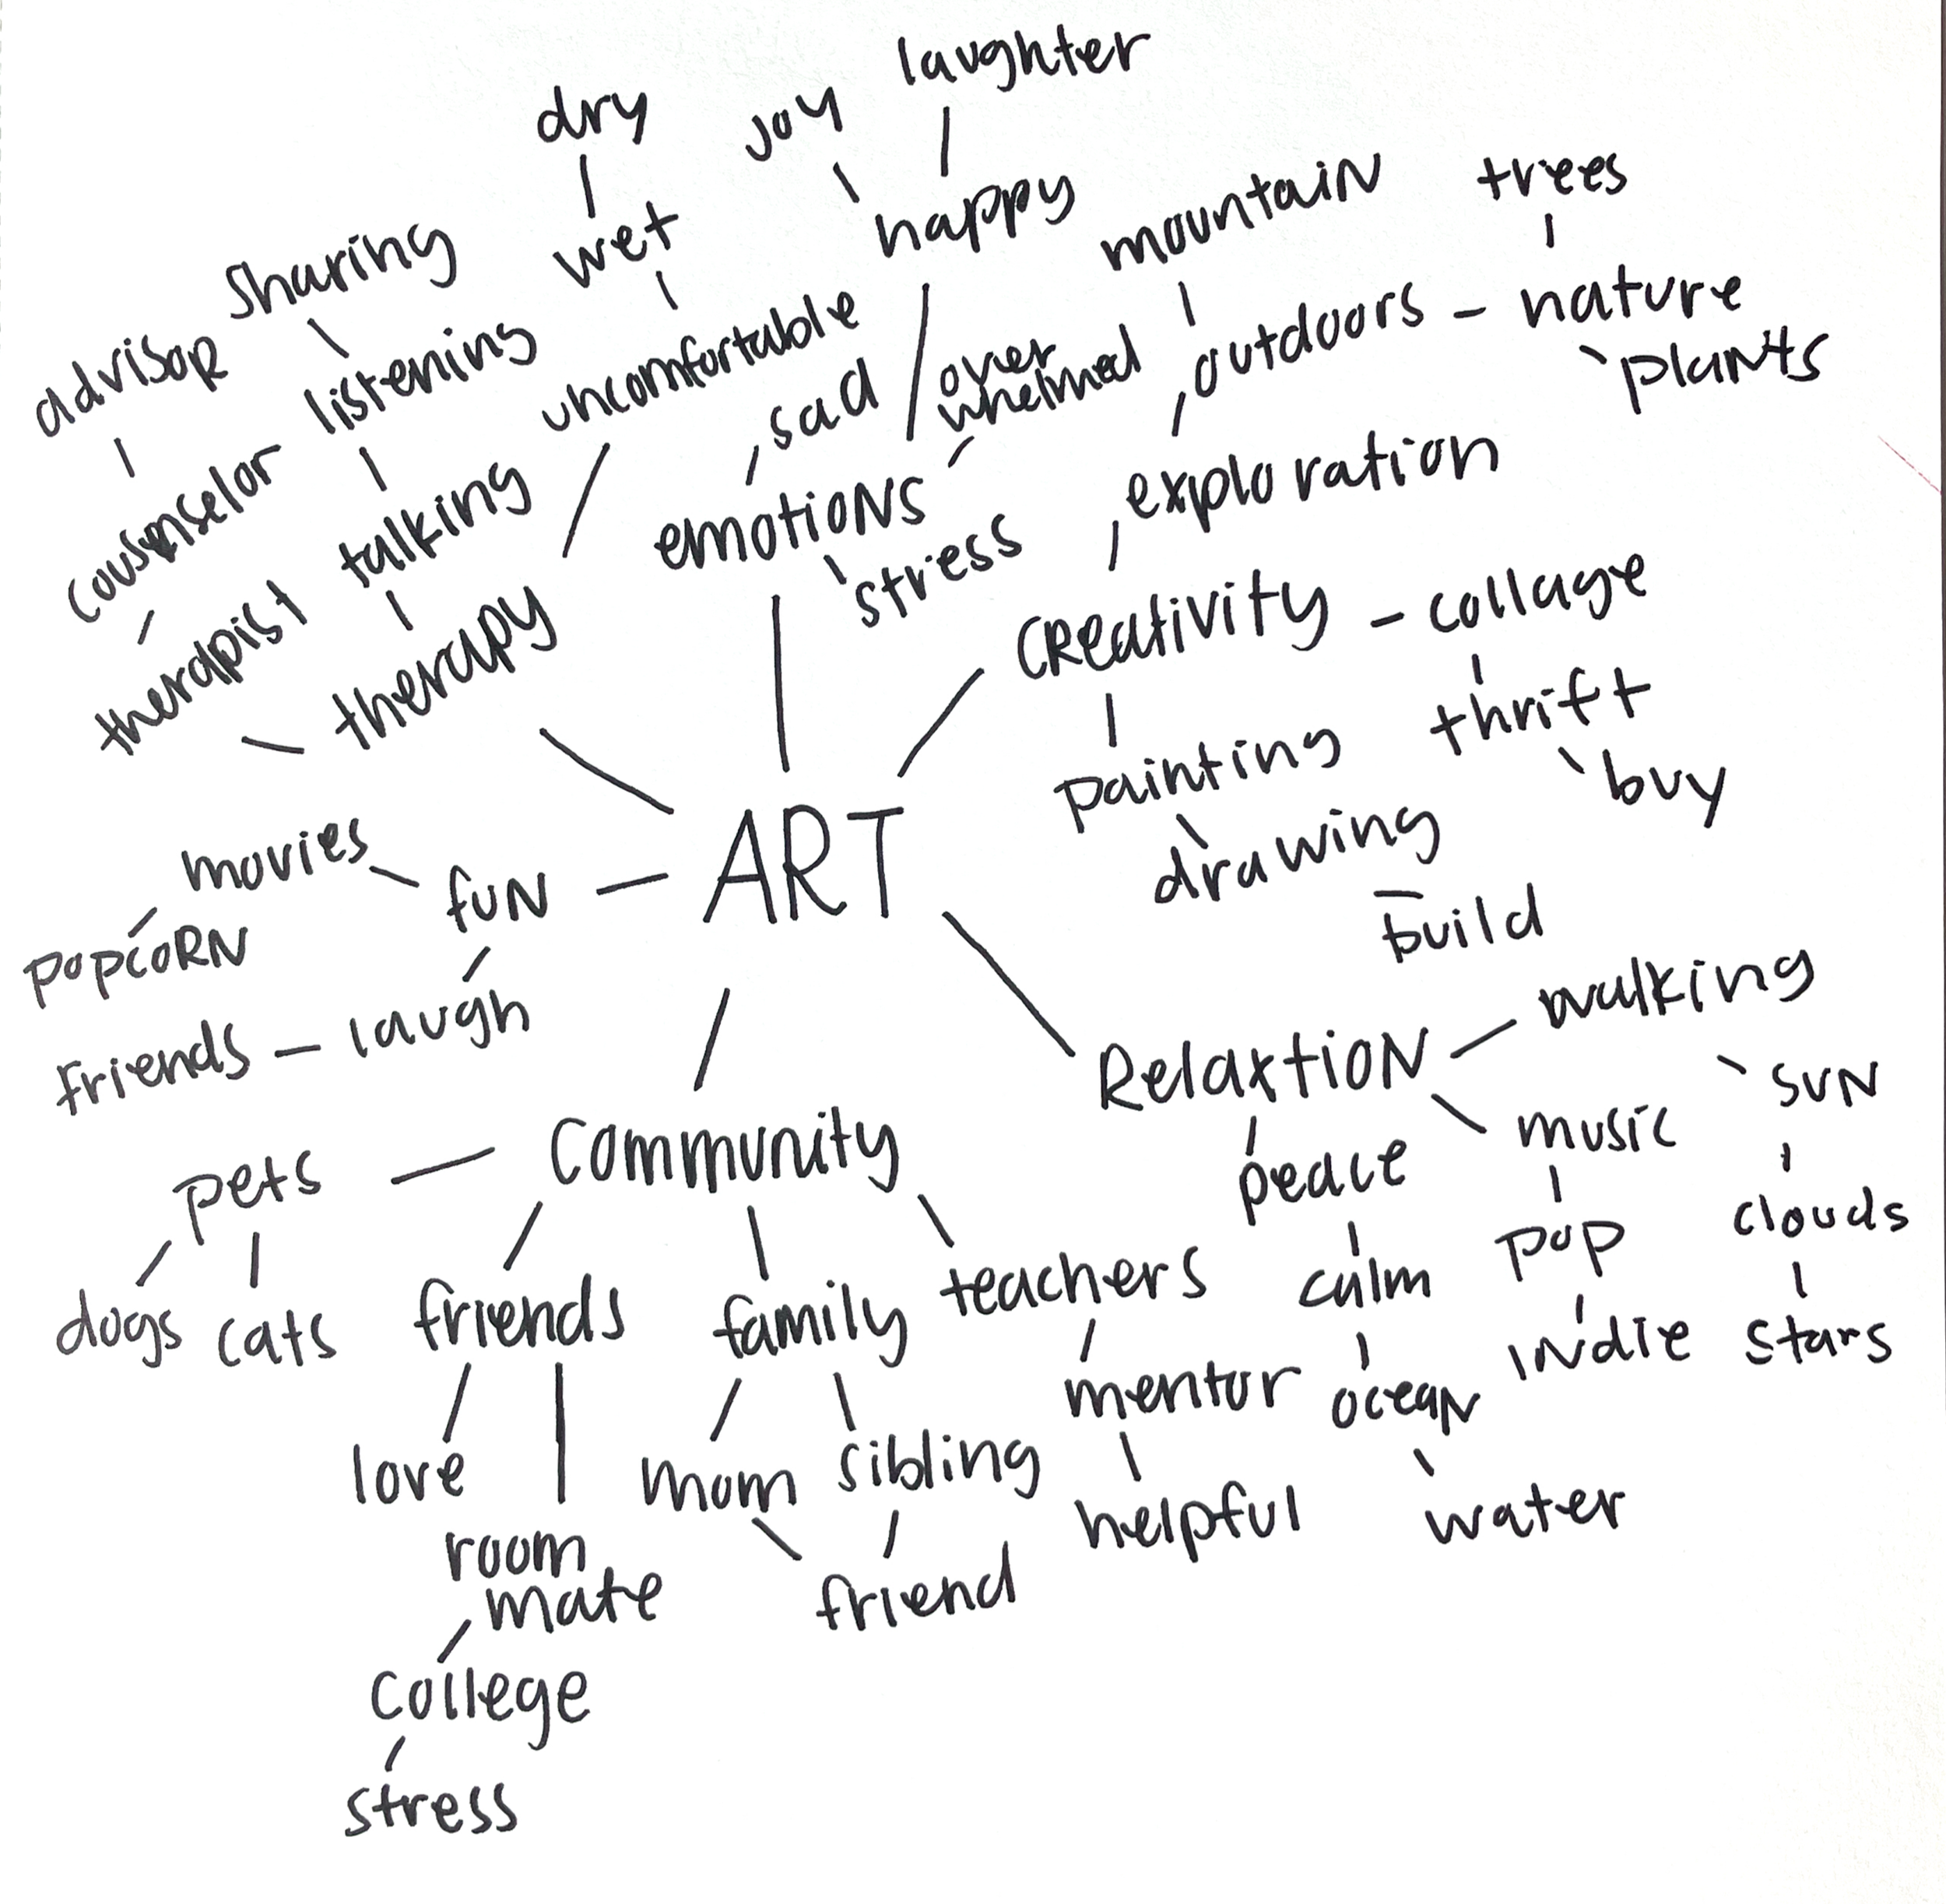 laughter
dry
joy
happy
mountain
trees
sharing
wet
outdoors - nature
plants
advisor
listening
uncomfortable
sad
over
whelmed
exploration
talking
emotions
stress
therapist
therapy
creativity - collage
thrift
buy
painting
drawing
build
ART
movies
fun
popcorn
friends - laugh
Relaxtion
walking
sun
music
clouds
peace
pop
stars
calm
indie
ocean
water
community
pets
dogs
cats
friends
family
teachers
mentor
helpful
love
mom
sibling
friend
room
mate
college
stress